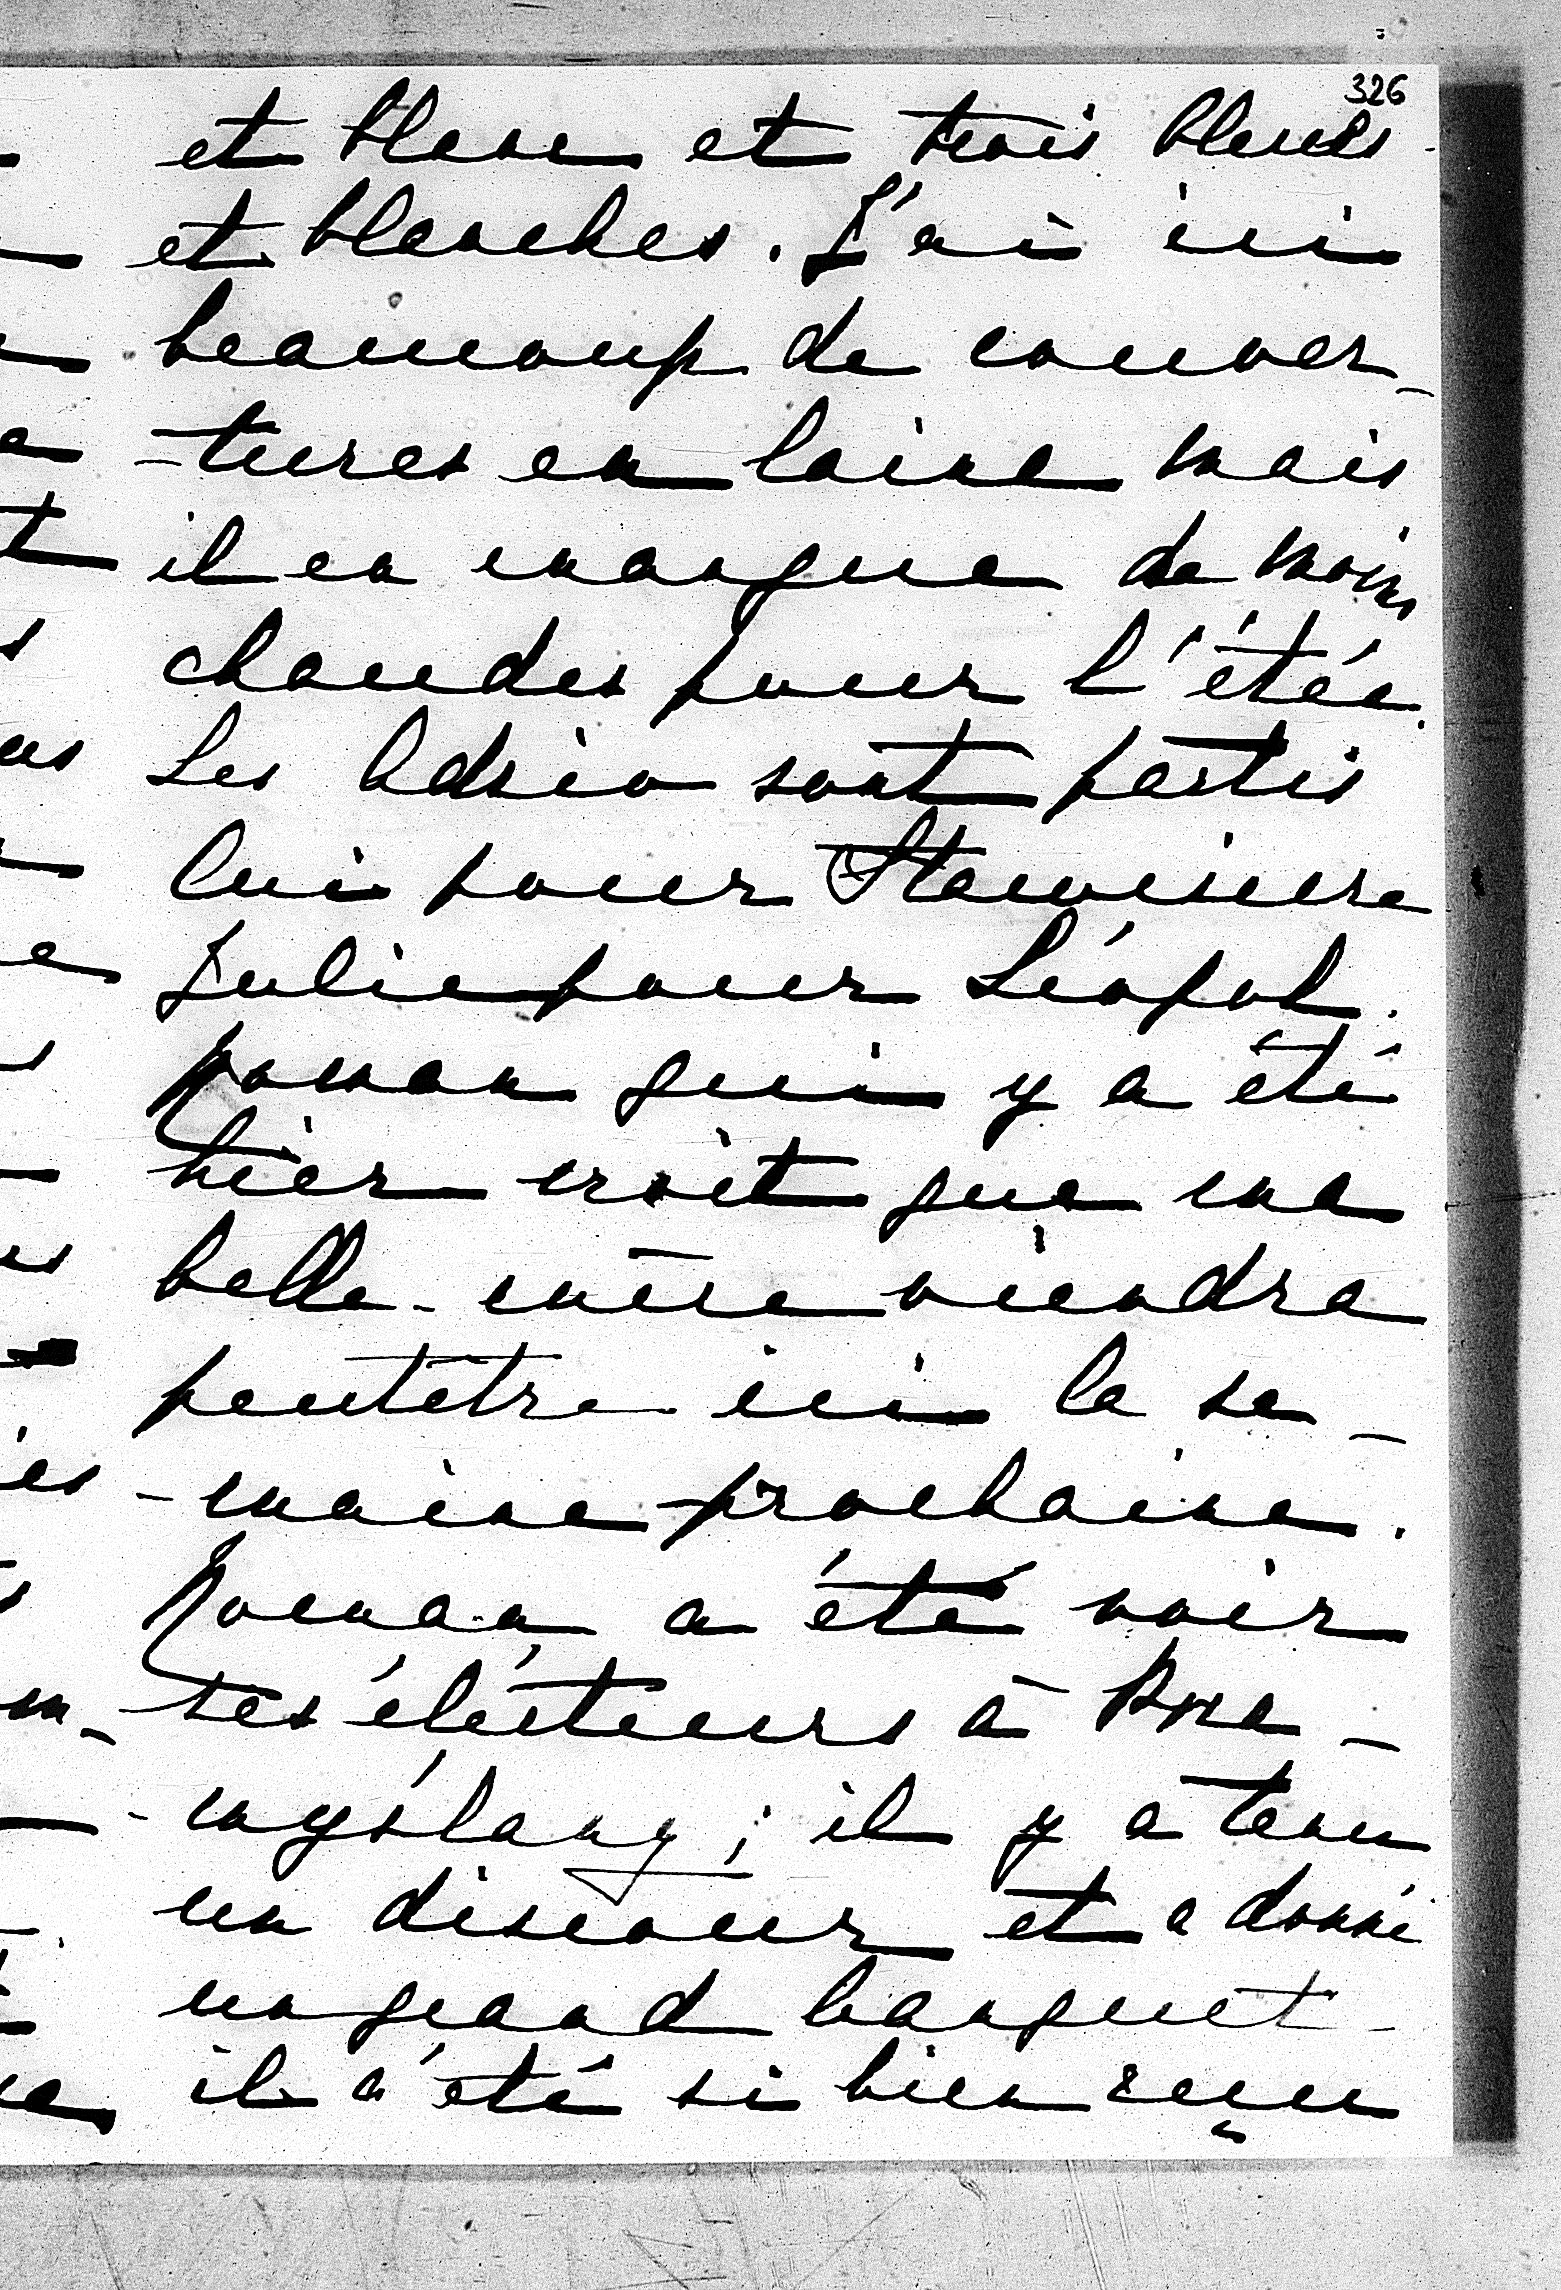 326
et blanc et trois bleues
et blanches. J'ai ici
beaucoup de couver-
-tures en laine mais
il en manque de moins
chaudes pour l'étée.
Les Adzio sont partis
lui pour
Julie pour Léopol.
Roman qui y a été
hier croit que ma
belle-mère viendra
peutêtre ici la se-
-maine prochaine.
Roman a été voir
ses électeurs à Prze-
-myślany; il y a tenu
un discour et a donné
un grand banquet -
il a été si bien reçu